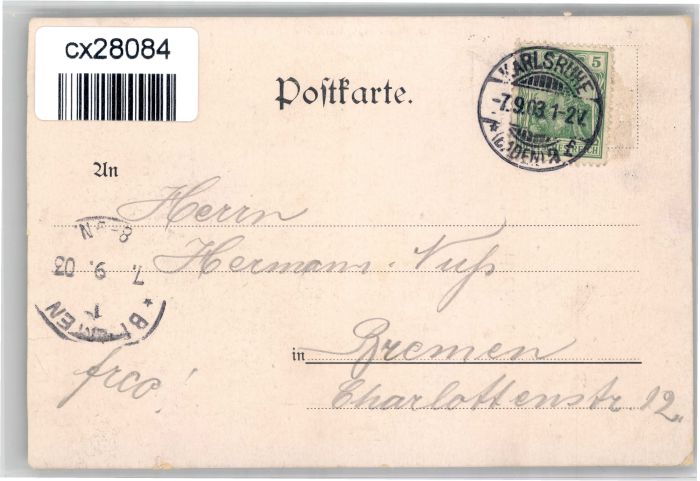 cx28084
Postkarte.
5
KARLSRUHE
-7.9.03.1-2V.
(BADEN)
An
Herrn
Hermann Nuß
8-N.
7. 9. 03
* BREMEN
1
in Bremen
frco!
Charlottenstr. 12.